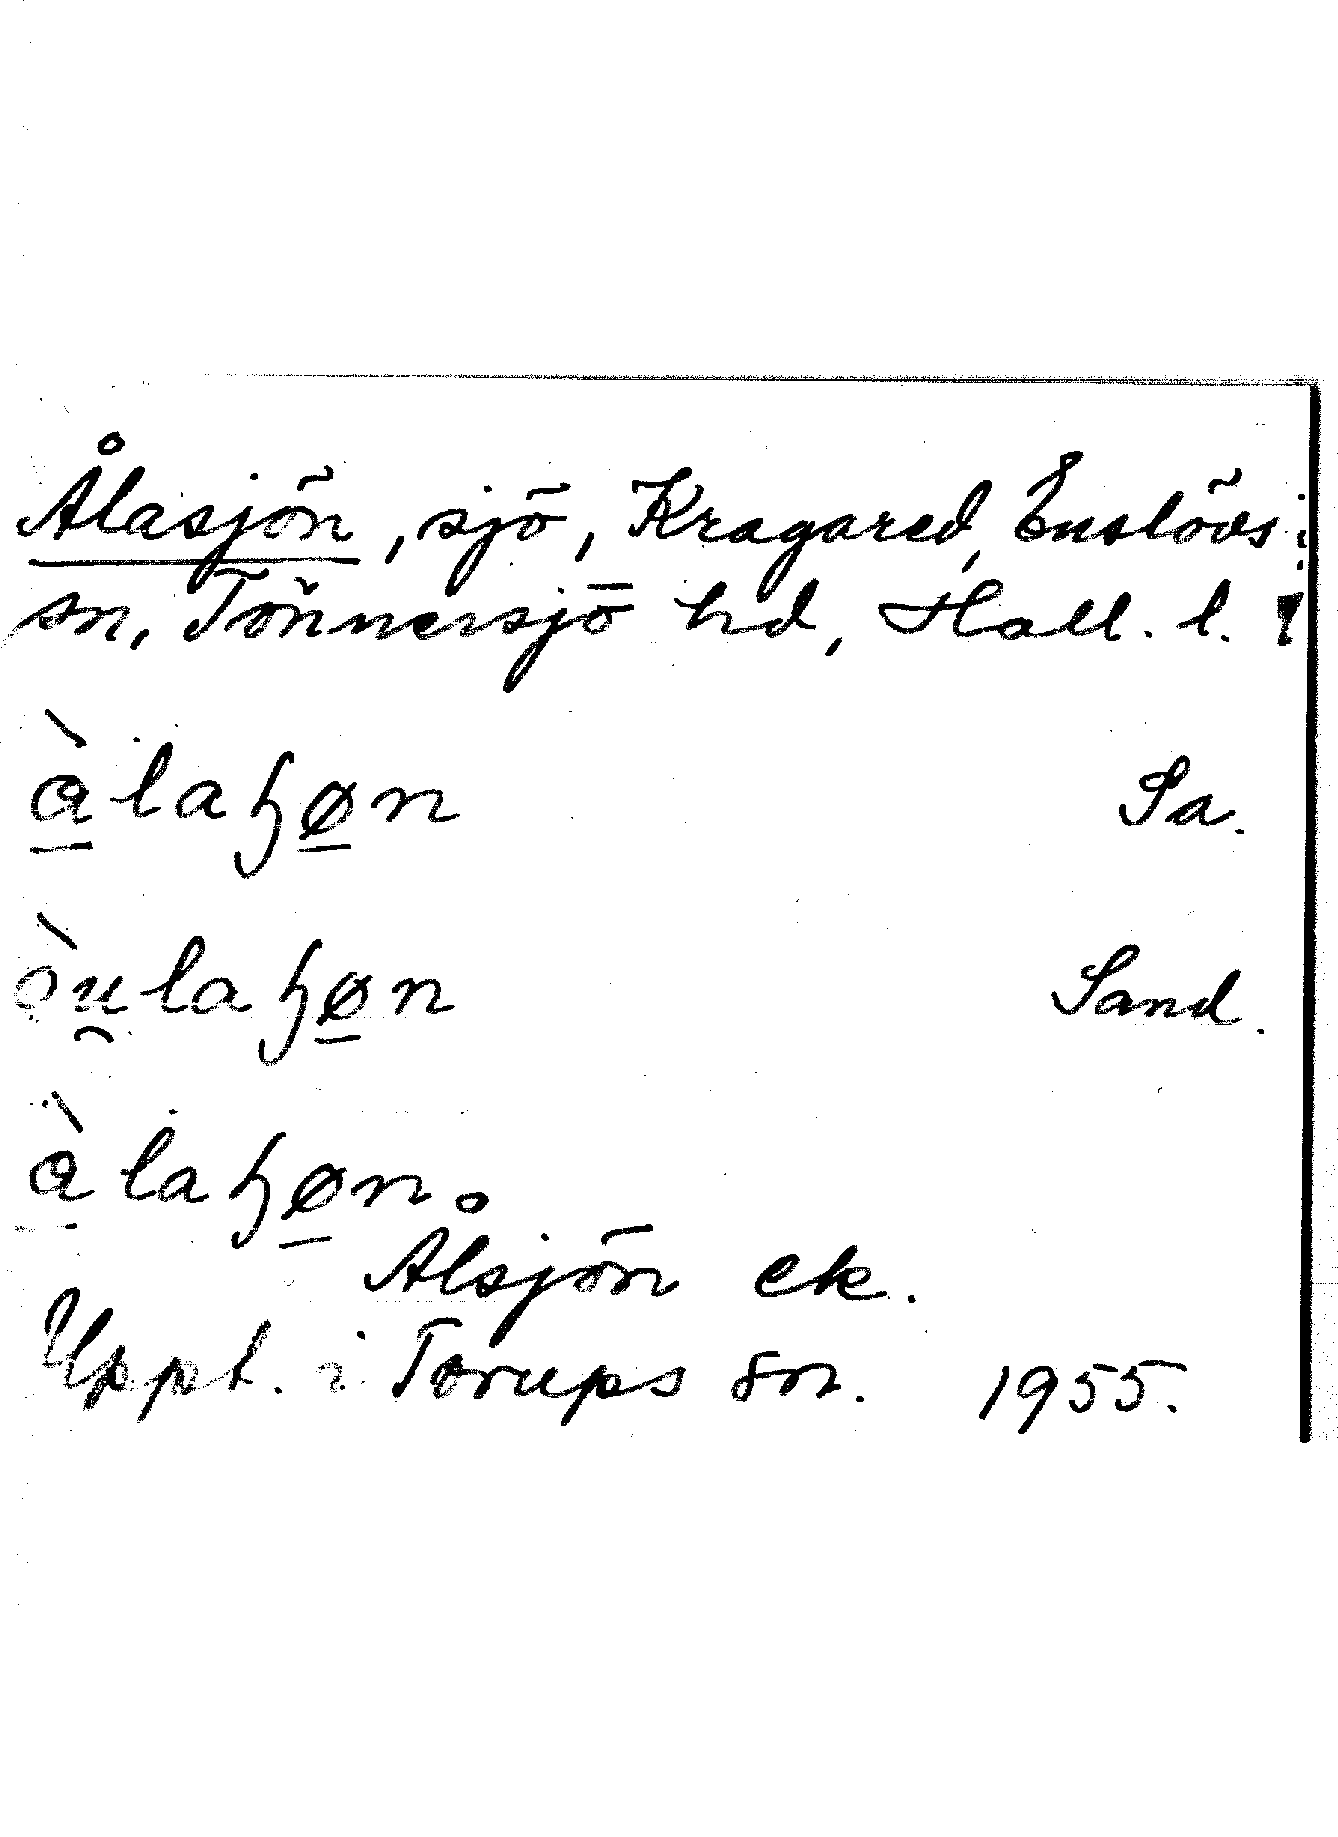 Ålasjön, sjö, Kragared, Enslövs
sn, Tönnersjö hd, Hall. l.
à̱laɧø̱n Sa.
òu̯laɧø̱n Sand.
à̱laɧø̱n
Ålsjön ek.
Uppt. i Torups sn. 1955.